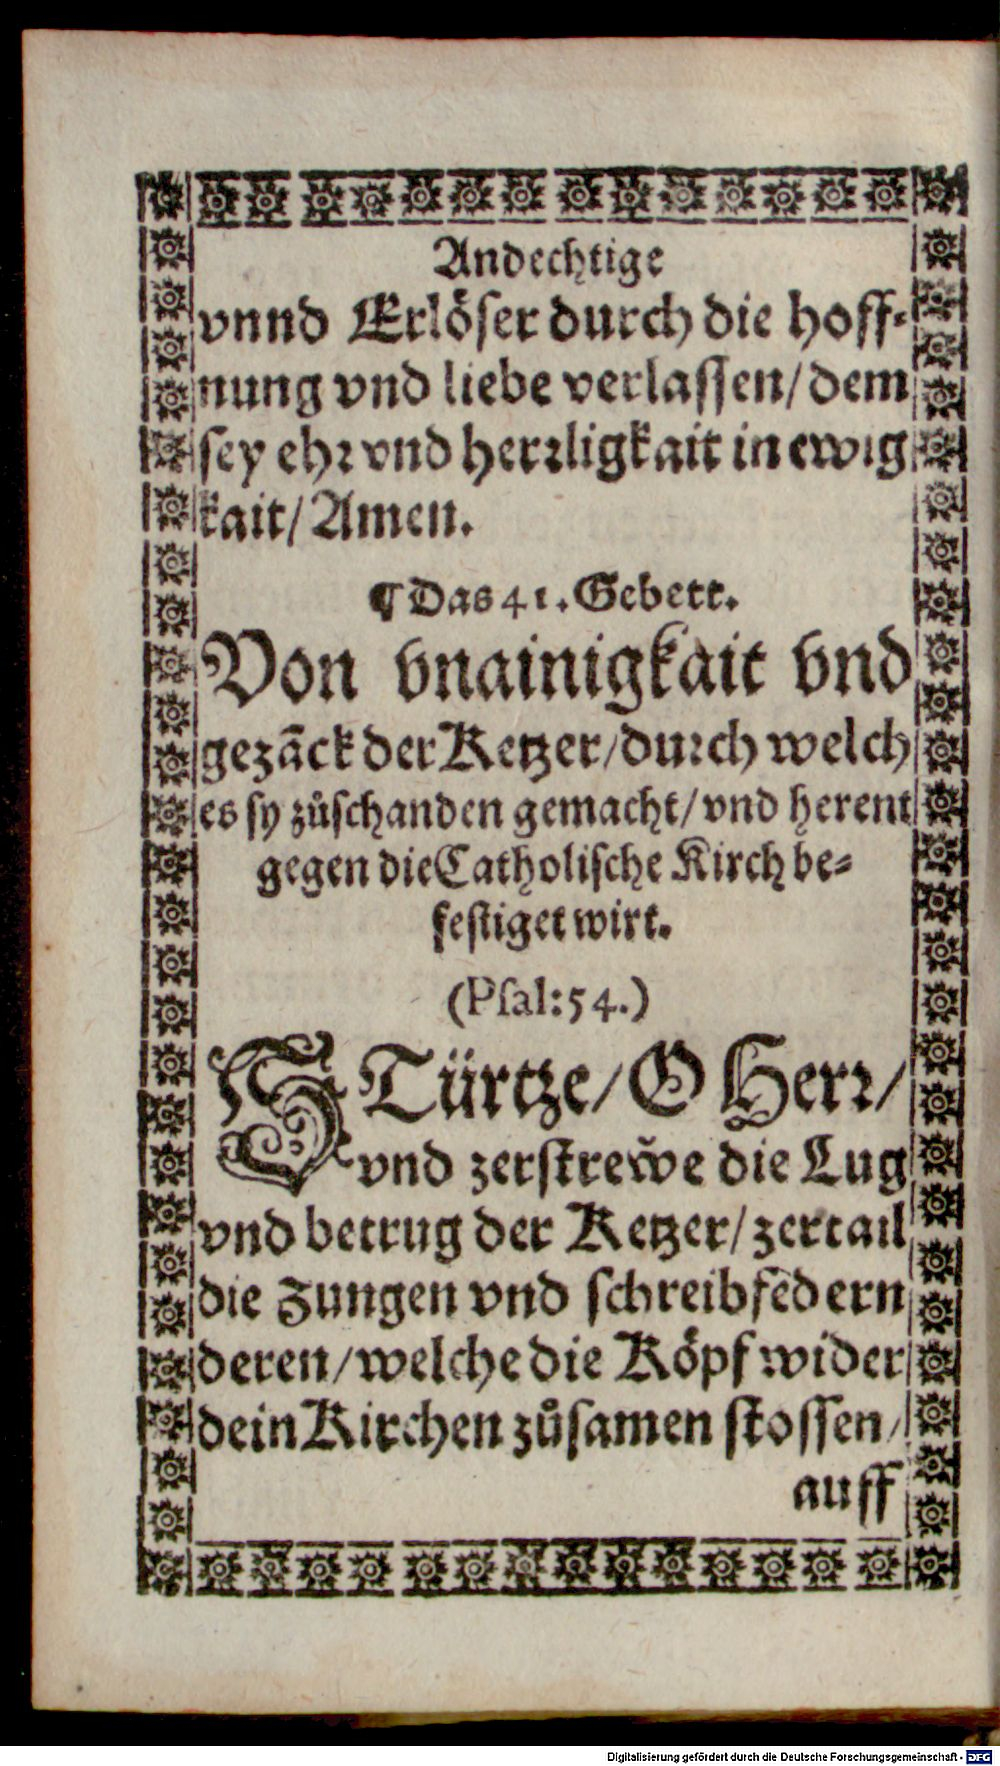 Andechtige
vnnd Erlöser durch die hoff⸗
nung vnd liebe verlassen/ dem
sey ehr vnd herrligkait in ewig
kait/ Amen.
¶ Das 41. Gebett.
Von vnainigkait vnd
gezāck der Ketzer/ durch welch
es sy zůschanden gemacht/ vnd herent
gegen die Catholische Kirch be⸗
festiget wirt.
(Psal: 54.)
STürtze/ O Herr/
vnd zerstrew̌e die Lug
vnd betrug der Ketzer/ zertail
die Zungen vnd schreibfedern
deren/ welche die Köpf wider
dein Kirchen zůsamen stossen/
auff
Digitalisierung gefördert durch die Deutsche Forschungsgemeinschaft - DFG